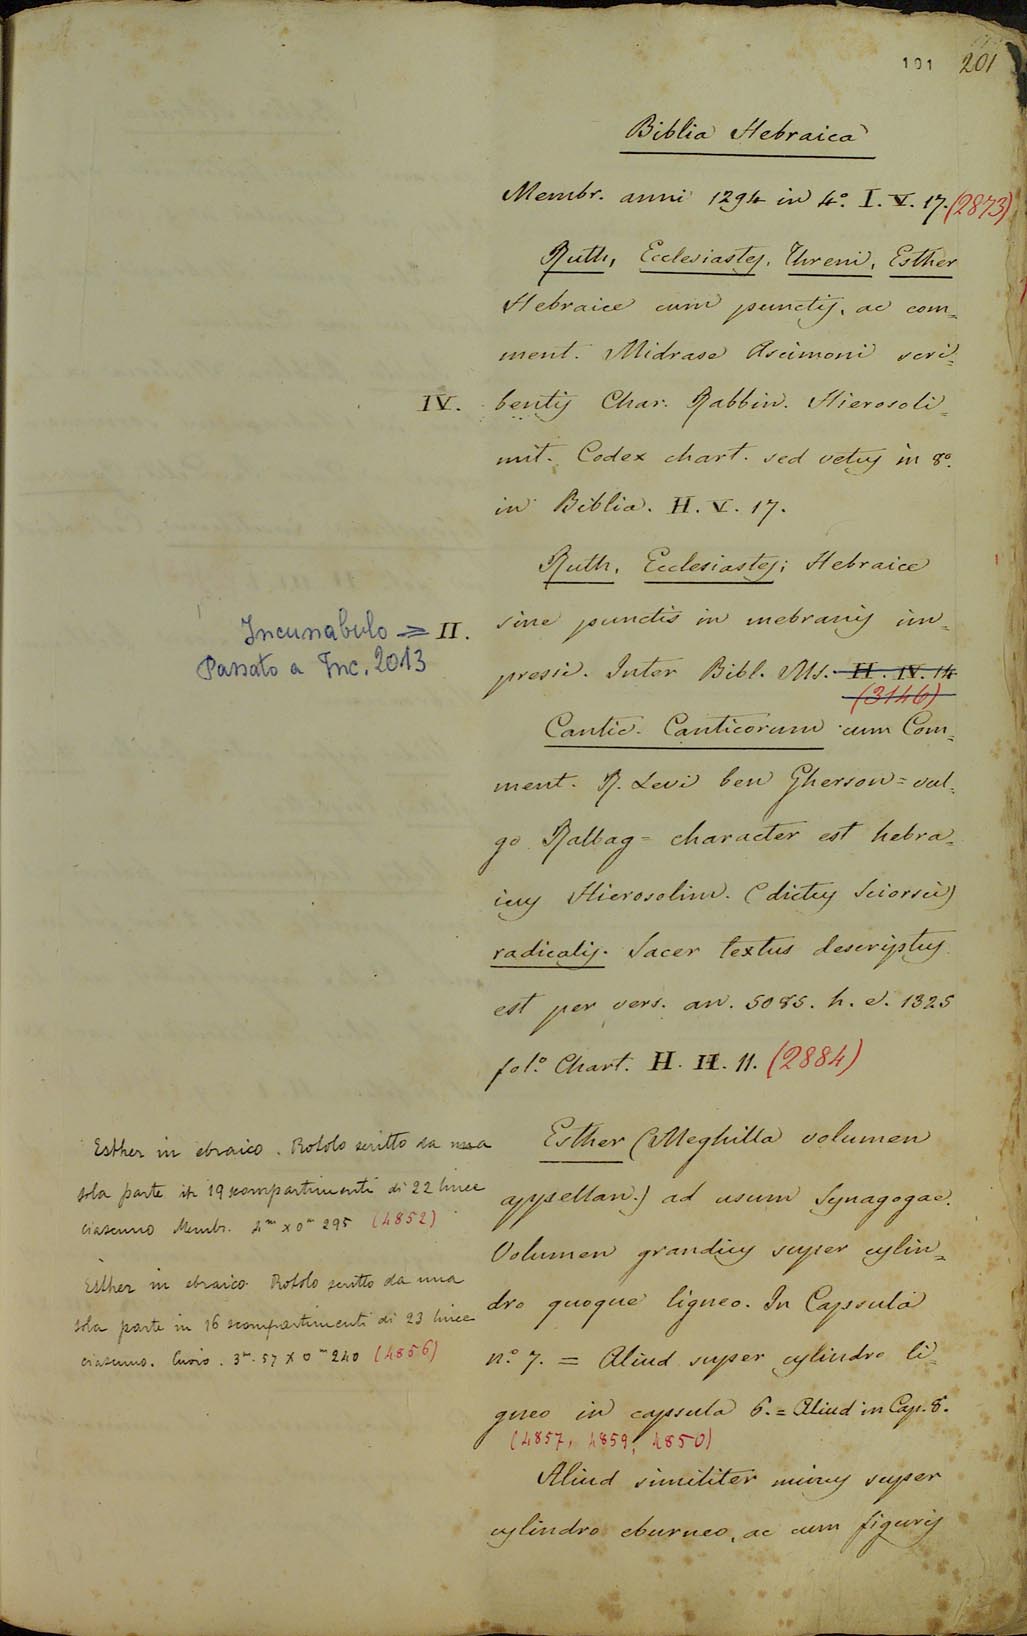 101 201
Biblia Hebraica
Membr. anni 1294 in 4.º I. V. 17. (2873)
Ruth, Ecclesiastes, Threni, Esther
Hebraice cum punctis, ac com=
ment. Midrasc Ascimoni scri=
IV. bentis Char. Rabbin. Hierosoli=
mit. Codex chart. sed vetus in 8º.
in Biblia. H. V. 17.
Ruth, Ecclesiastes; Hebraice
Incunabulo = II. sine punctis in mebranis im=
Passato a Inc. 2013
pressi. Inter Bibl. Ms. H. IV. 14
(3146)
Cantic. Canticorum cum Com=
ment. R. Levi ben Gherson = vul=
go Ralbag = character est hebra=
icus Hierosolim. (dictus Sciorsci)
radicalis. Sacer textus descriptus
est per vers. an. 5085. h. e. 1325
fol.º Chart. H. II. 11. (2884)
Esther (Meghilla volumen
appellan.) ad usum Synagogae.
Volumen grandius super cylin=
dro quoque ligneo. In Capsula
n.º 7. = Aliud super cylindro li=
gneo in capsula 6. = Aliud in Cap. 8.
(4857, 4859, 4850)
Aliud similiter minus super
cylindro eburneo, ac cum figuris
Esther in ebraico. Rotolo scritto da una
sola parte in 19 scompartimenti di 22 linee
ciascuno Membr. 4ᵐ x 0ᵐ 295 (4852)
Esther in ebraico. Rotolo scritto da una
sola parte in 16 scompartimenti di 23 linee
ciascuno. Cuoio. 3ᵐ. 57 x 0ᵐ 240 (4856)